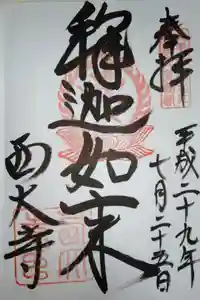 奉拝
平成二十九年
七月二十五日
釋迦如来
西大寺